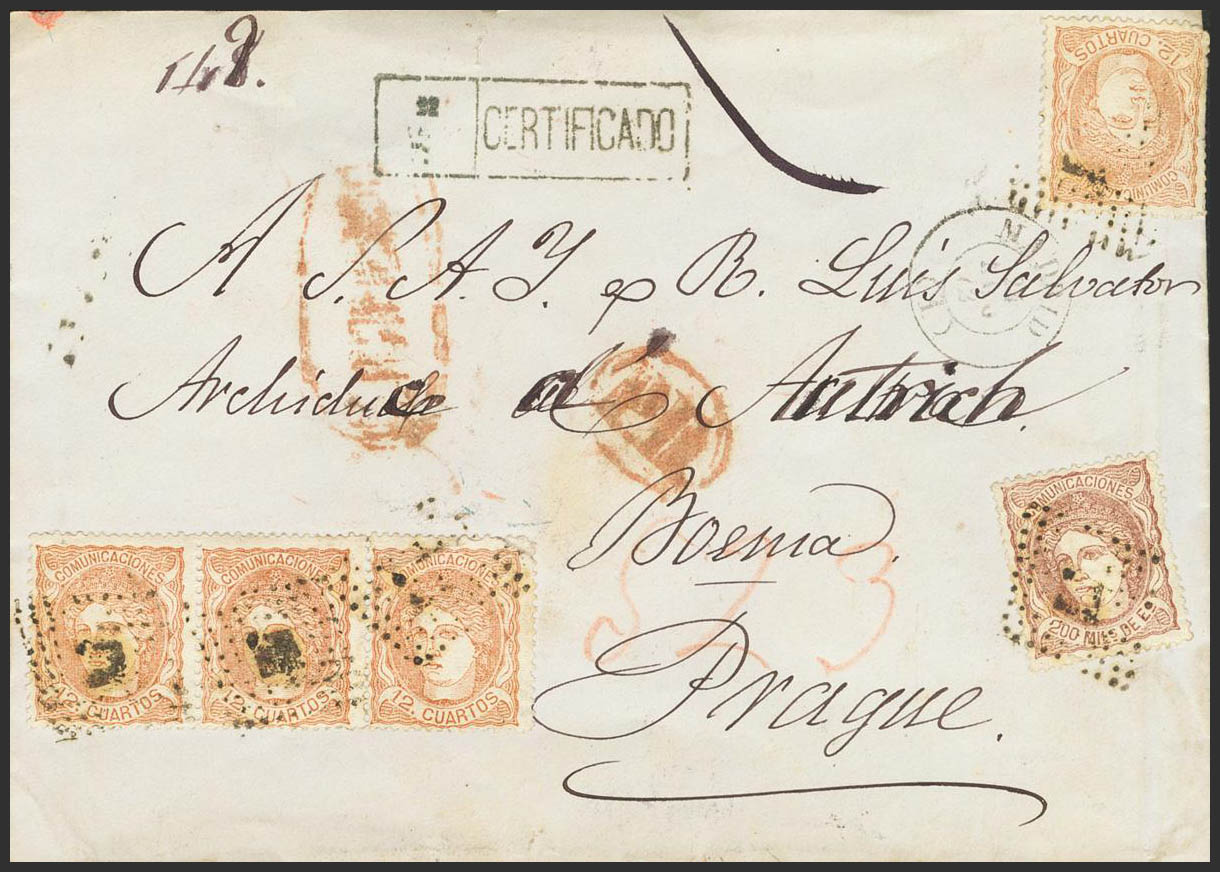 148.
CERTIFICADO
12. CUARTOS
COMUNICACIONES
MADRID
A S. A. I. y R. Luis Salvator
Archiduc d' Autrich.
Boema.
Prague.
COMUNICACIONES
200 MILS DE Eº
COMUNICACIONES
12. CUARTOS
COMUNICACIONES
12. CUARTOS
COMUNICACIONES
12. CUARTOS
23